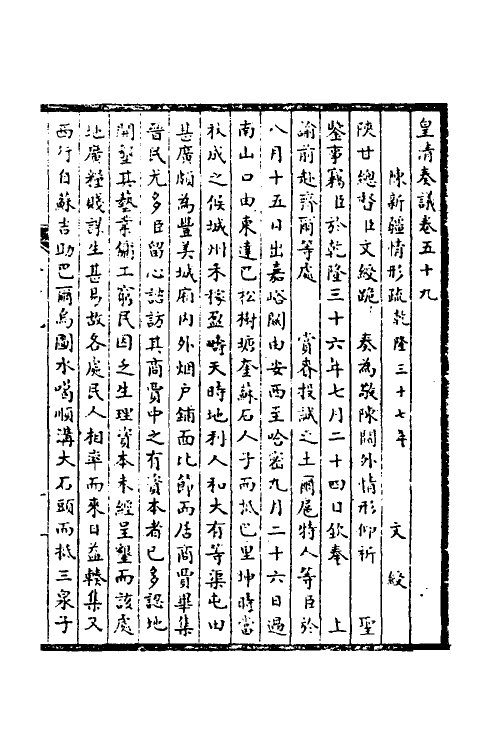 皇清奏議卷五十九
陳新疆情形疏乾隆三十七年 文綬
陝甘總督臣文綬跪 奏為敬陳關外情形仰祈 聖
鑒事竊臣於乾隆三十六年七月二十四日欽奉 上
諭前赴濟爾等處 賞賚投誠之土爾扈特人等臣於
八月十五日出嘉峪關由安西至哈密九月二十六日過
南山口由東達巴松樹塘奎蘇石人子而抵巴里坤時當
秋成之候城州禾稼盈疇天時地利人和大有等渠屯田
甚廣頗為豐美城廂內外烟户鋪面比節而居商賈畢集
晉民尤多臣留心諮訪其商賈中之有資本者已多認地
開墾其藝業傭工窮民因乏生理資本未經呈墾而該處
地廣糧賤謀生甚易故各處民人相率而來日益輳集又
西行自蘇吉助巴爾烏圖水噶順溝大石頭而抵三泉子